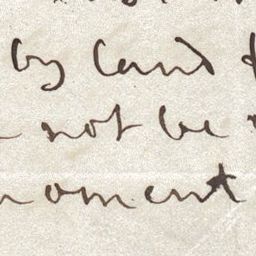 by land
not be
moment